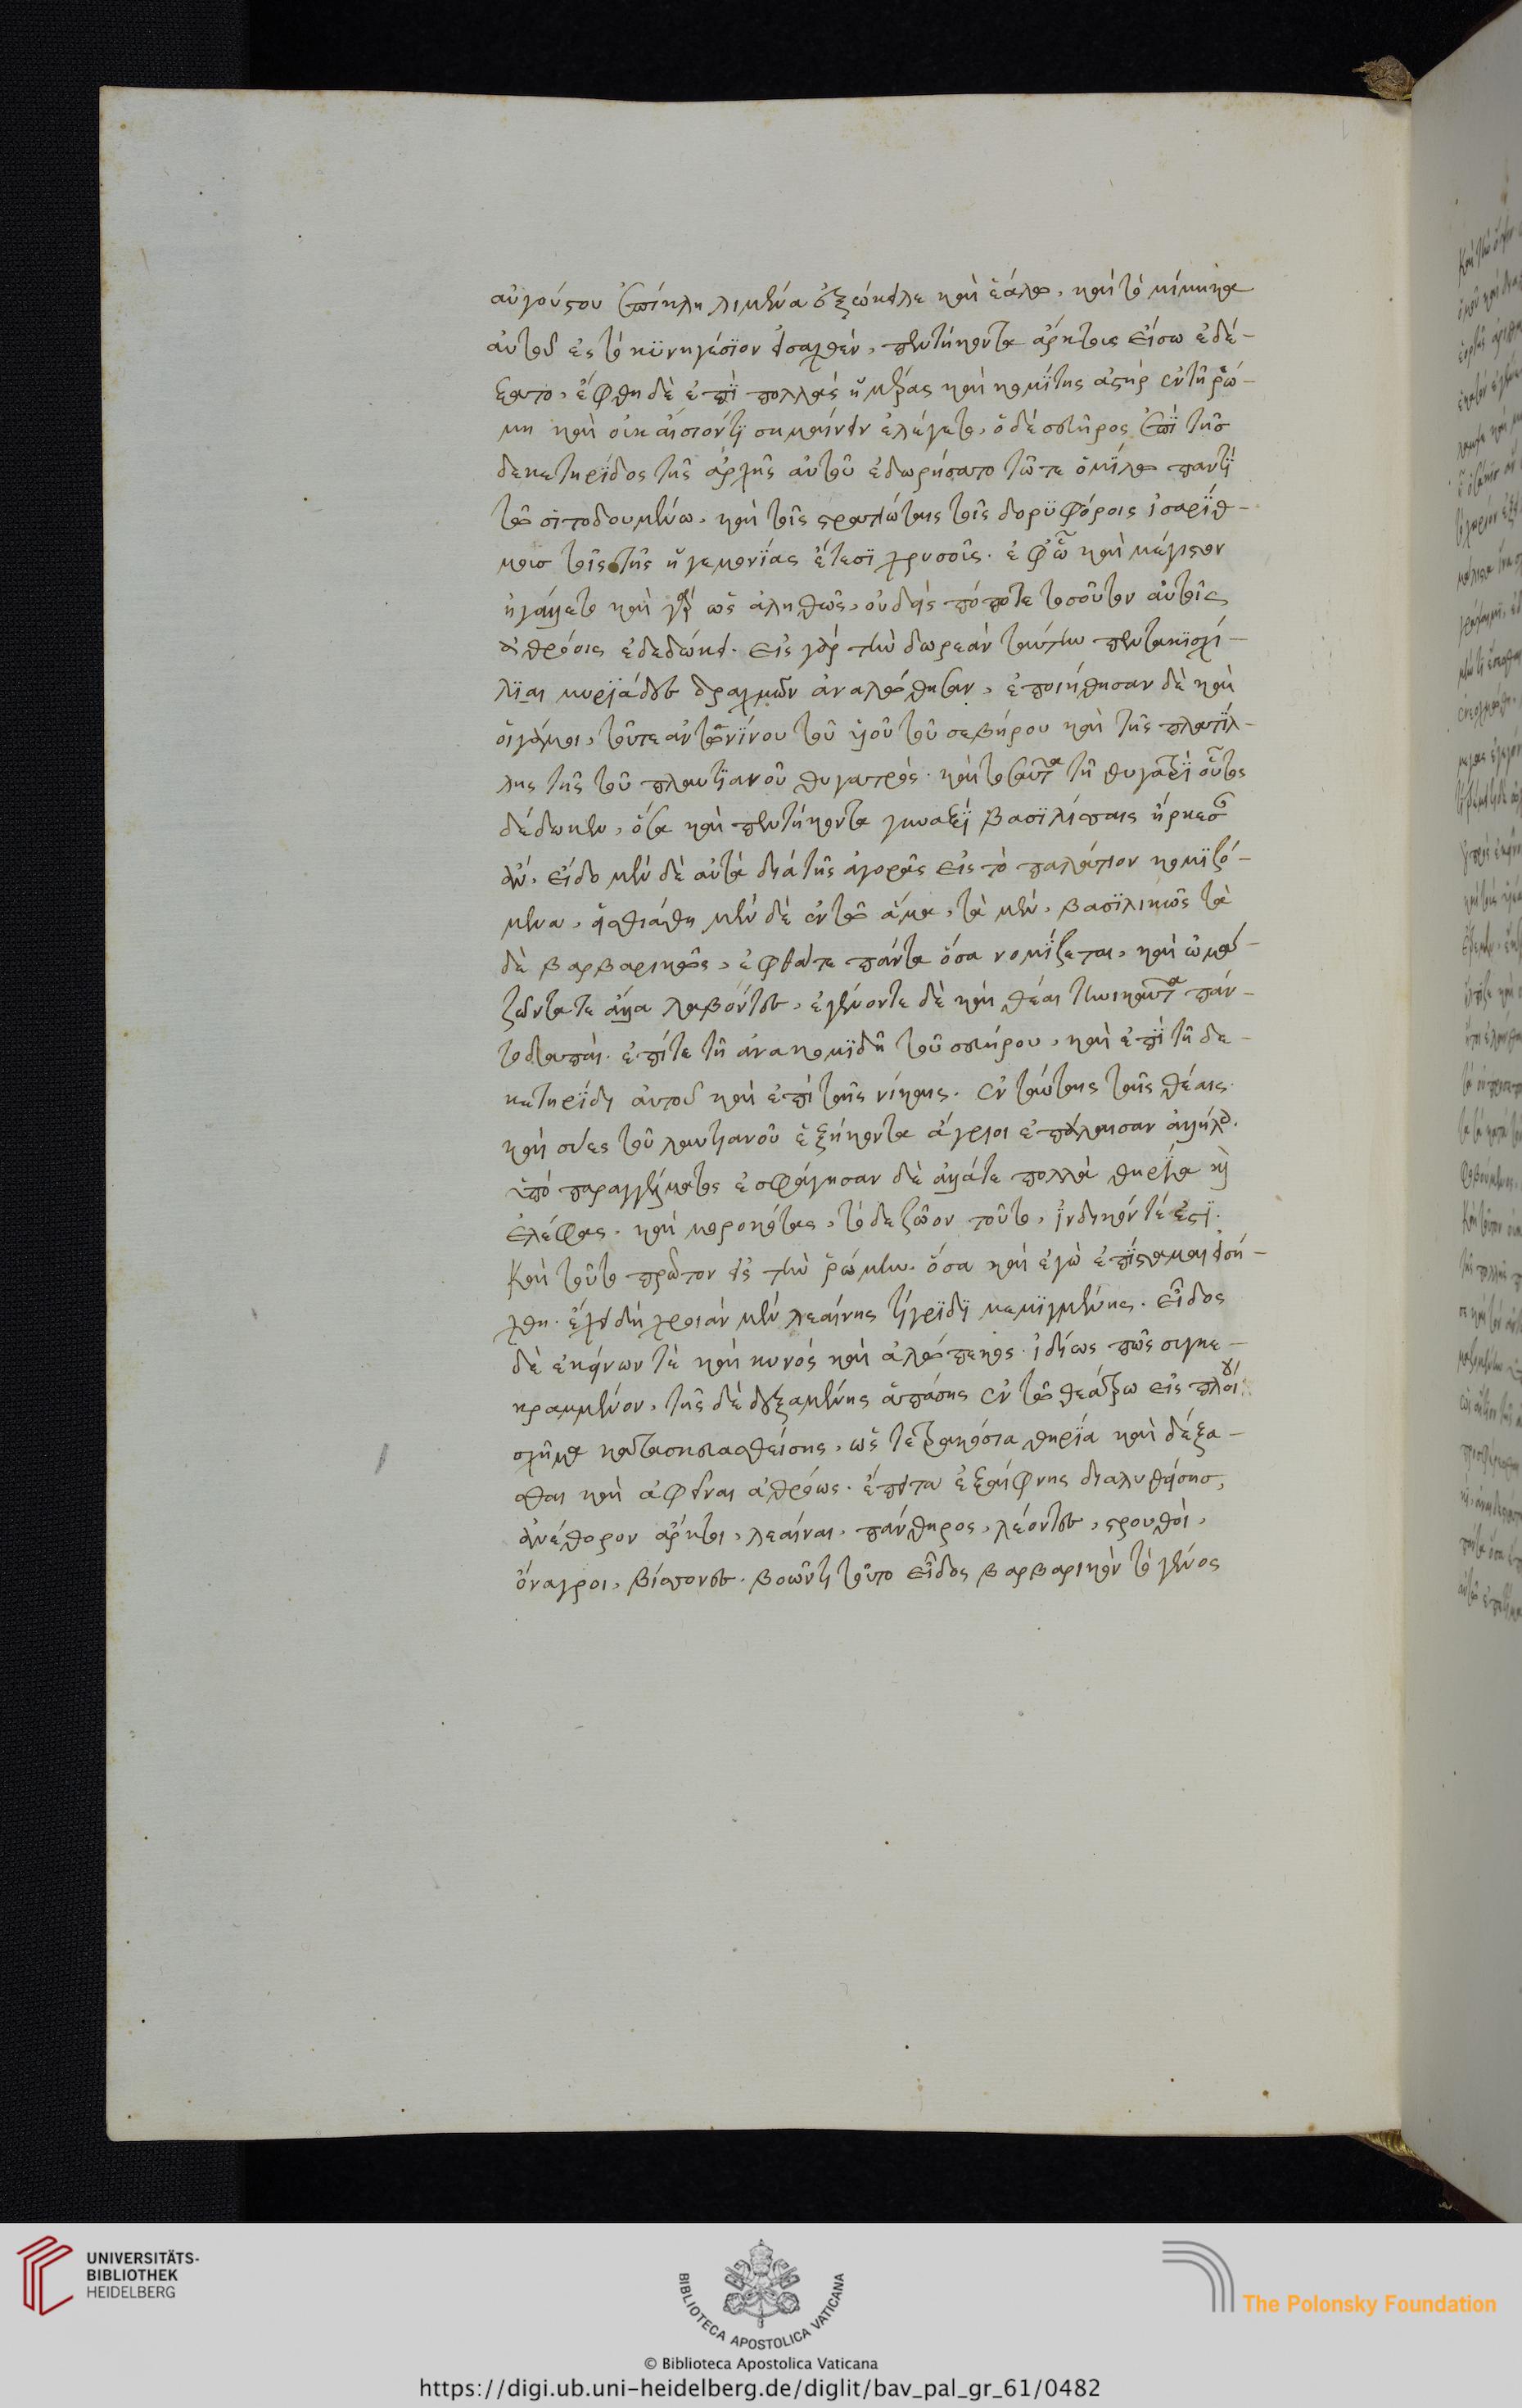 αὐγούστου ἐπίκλην λιμένα ἐξώκειλε καὶ ἑάλω, καὶ τὸ μίμημα
αὐτοῦ ἐς τὸ κϋνηγέσϊον ἐσαχθὲν, πεντήκοντα ἄρκτους εἴσω ἐδέ-
ξατο, ὤφθη δὲ ἐπϊ πολλὰς ἡμέρας καὶ κομϊτης ἀστὴρ ἐν τῆ ῥώ-
μη καὶ οὐκ αἴσιόν τϊ σημαίνειν ἐλέγετο, ὁ δὲ σεβῆρος ἐπϊ τῆς
δεκετηρίδος τῆς ἀρχῆς αὐτοῦ ἐδωρήσατο τῶ τε ὁμίλω παντὶ
τῶ σϊτοδουμένω, καὶ τοῖς στρατιώταις τοῖς δορϋφόροις ἰσαρΐθ-
μους τοῖς τῆς ἡγεμονΐας ἔτεσϊ χρυσοῦς. ἐφ' ὧ καὶ μέγιστον
ἠγάλλετο καὶ γὰρ ὡς ἀληθῶς, οὐδεὶς πόποτε τοσοῦτον αὐτοῖς
ἀθρόοις ἐδεδώκει. εἰς γὰρ τὴν δωρεὰν ταύτην πεντακισχί-
λϊαι μυρϊάδες δραχμῶν ἀναλώθησαν, ἐποιήθησαν δὲ καὶ
οἱ γάμοι, τοῦ τε ἀντωνΐνου τοῦ ὑοῦ τοῦ σεβήρου καὶ τῆς πλατίλ-
λης τῆς τοῦ πλαυτϊανοῦ θυγατρός. καὶ τοσαῦτα τῆ θυγατρὶ οὗτος
δέδωκεν, ὅσα καὶ πεντήκοντα γυναιξϊ βασϊλίσσαις ἤρκεσεν
ἄν. εἴδομεν δὲ αὐτὰ διὰ τῆς ἀγορᾶς εἰς τὸ παλάτιον κομϊζό-
μενα, εἱσθιάθημεν δὲ ἐν τῶ ἅμα, τὰ μὲν, βασϊλικῶς τὰ
δὲ βαρβαρικῶς, ἑφθά τε πάντα ὅσα νομΐζεται, καὶ ὠμὰ
ζῶντα τε ἄλλα λαβόντες. ἐγένοντο δὲ καὶ θέαι τηνικαῦτα παν-
τοδαπαὶ. ἐπί τε τῆ ἀνακομϊδῆ τοῦ σεβήρου, καὶ ἐπϊ τῆ δε-
κετηρΐδι αὐτοῦ καὶ ἐπὶ ταῖς νίκαις. ἐν ταύταις ταῖς θέαις.
καὶ σύες τοῦ πλαυτιανοῦ ἑξήκοντα ἄγριοι ἐπάλαισαν ἀλλήλοις
ὑπὸ παραγγέλματος ἐσφάγησαν δὲ ἄλλα τε πολλὰ θηρΐα καὶ
ἐλέφας. καὶ κοροκότας, τὸ δε ζῶον τοῦτο, ἰνδικόν τέ ἐστϊ.
Καὶ τοῦτο πρῶτον εἰς τὴν ῥώμην. ὅσα καὶ ἐγὼ ἐπΐσταμαι ἐσή-
χθη. ἔχει δὴ χροιὰν μὲν λεαίνης τίγρϊδϊ μεμϊγμένης. εἶδος
δὲ ἐκείνων τὲ καὶ κυνὸς καὶ ἀλώπεκος. ἰδίως πῶς συγκε-
κραμμένον, τῆς δὲ δεξαμένης ἁπάσης ἐν τῶ θεάτρω εἰς πλοίου
σχῆμα κατασκευασθείσης, ὡς τετρακόσια θηρϊα καὶ δέξα-
σθαι καὶ ἀφεῖναι ἀθρόως. ἔπειτα ἐξαίφνης διαλυθείσης,
ἀνέθορον ἄρκτοι, λεαίναι, πάνθηρος, λέοντες, στρουθοὶ,
ὄναγροι, βίσσονες. βοῶν τϊ τοῦτο εἶδος βαρβαρικὸν τὸ γένος
UNIVERSITÄTS-
BIBLIOTHEK
HEIDELBERG
BIBLIOTECA APOSTOLICA VATICANA
The Polonsky Foundation
© Biblioteca Apostolica Vaticana
https://digi.ub.uni-heidelberg.de/diglit/bav_pal_gr_61/0482